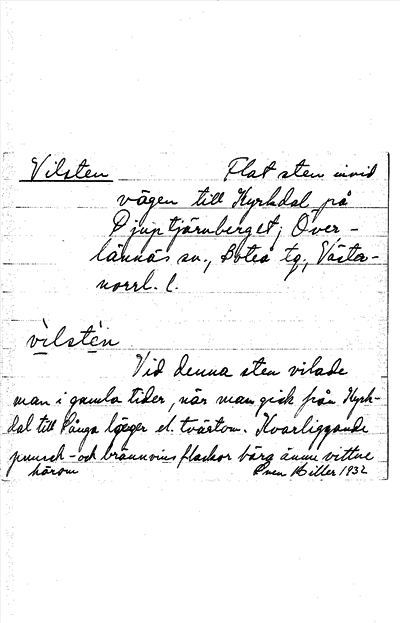 Vilsten Flat sten invid
vägen till Kyrkdal på
Djuptjärnberget; Över-
lännäs sn., Boteå tg, Väster-
norrl. l.
vìlstén
Vid denna sten vilade
man i gamla tider, när man gick från Kyrk-
dal till Vånga läger el. tvärtom. Kvarliggande
punsch- och brännvinsflaskor bära ännu vittne
härom Sven Hiller 1932